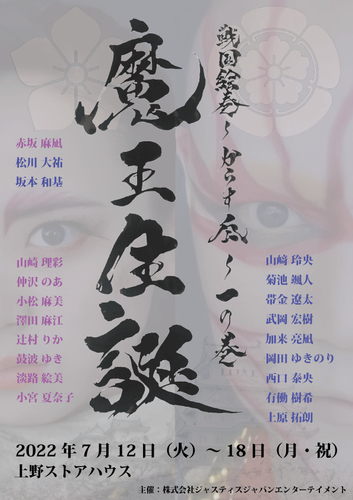 戦国絵巻～からす風～一の巻
魔王生誕
赤坂 麻凪
松川 大祐
坂本 和基
山﨑 理彩
仲沢 のあ
小松 麻美
澤田 麻江
辻村 りか
鼓波 ゆき
淡路 絵美
小宮 夏奈子
山﨑 玲央
菊池 颯人
帯金 遼太
武岡 宏樹
加来 亮凪
岡田 ゆきのり
西口 泰央
有働 樹希
上原 拓朗
2022年7月12日（火）～18日（月・祝）
上野ストアハウス
主催：株式会社ジャスティスジャパンエンターテイメント